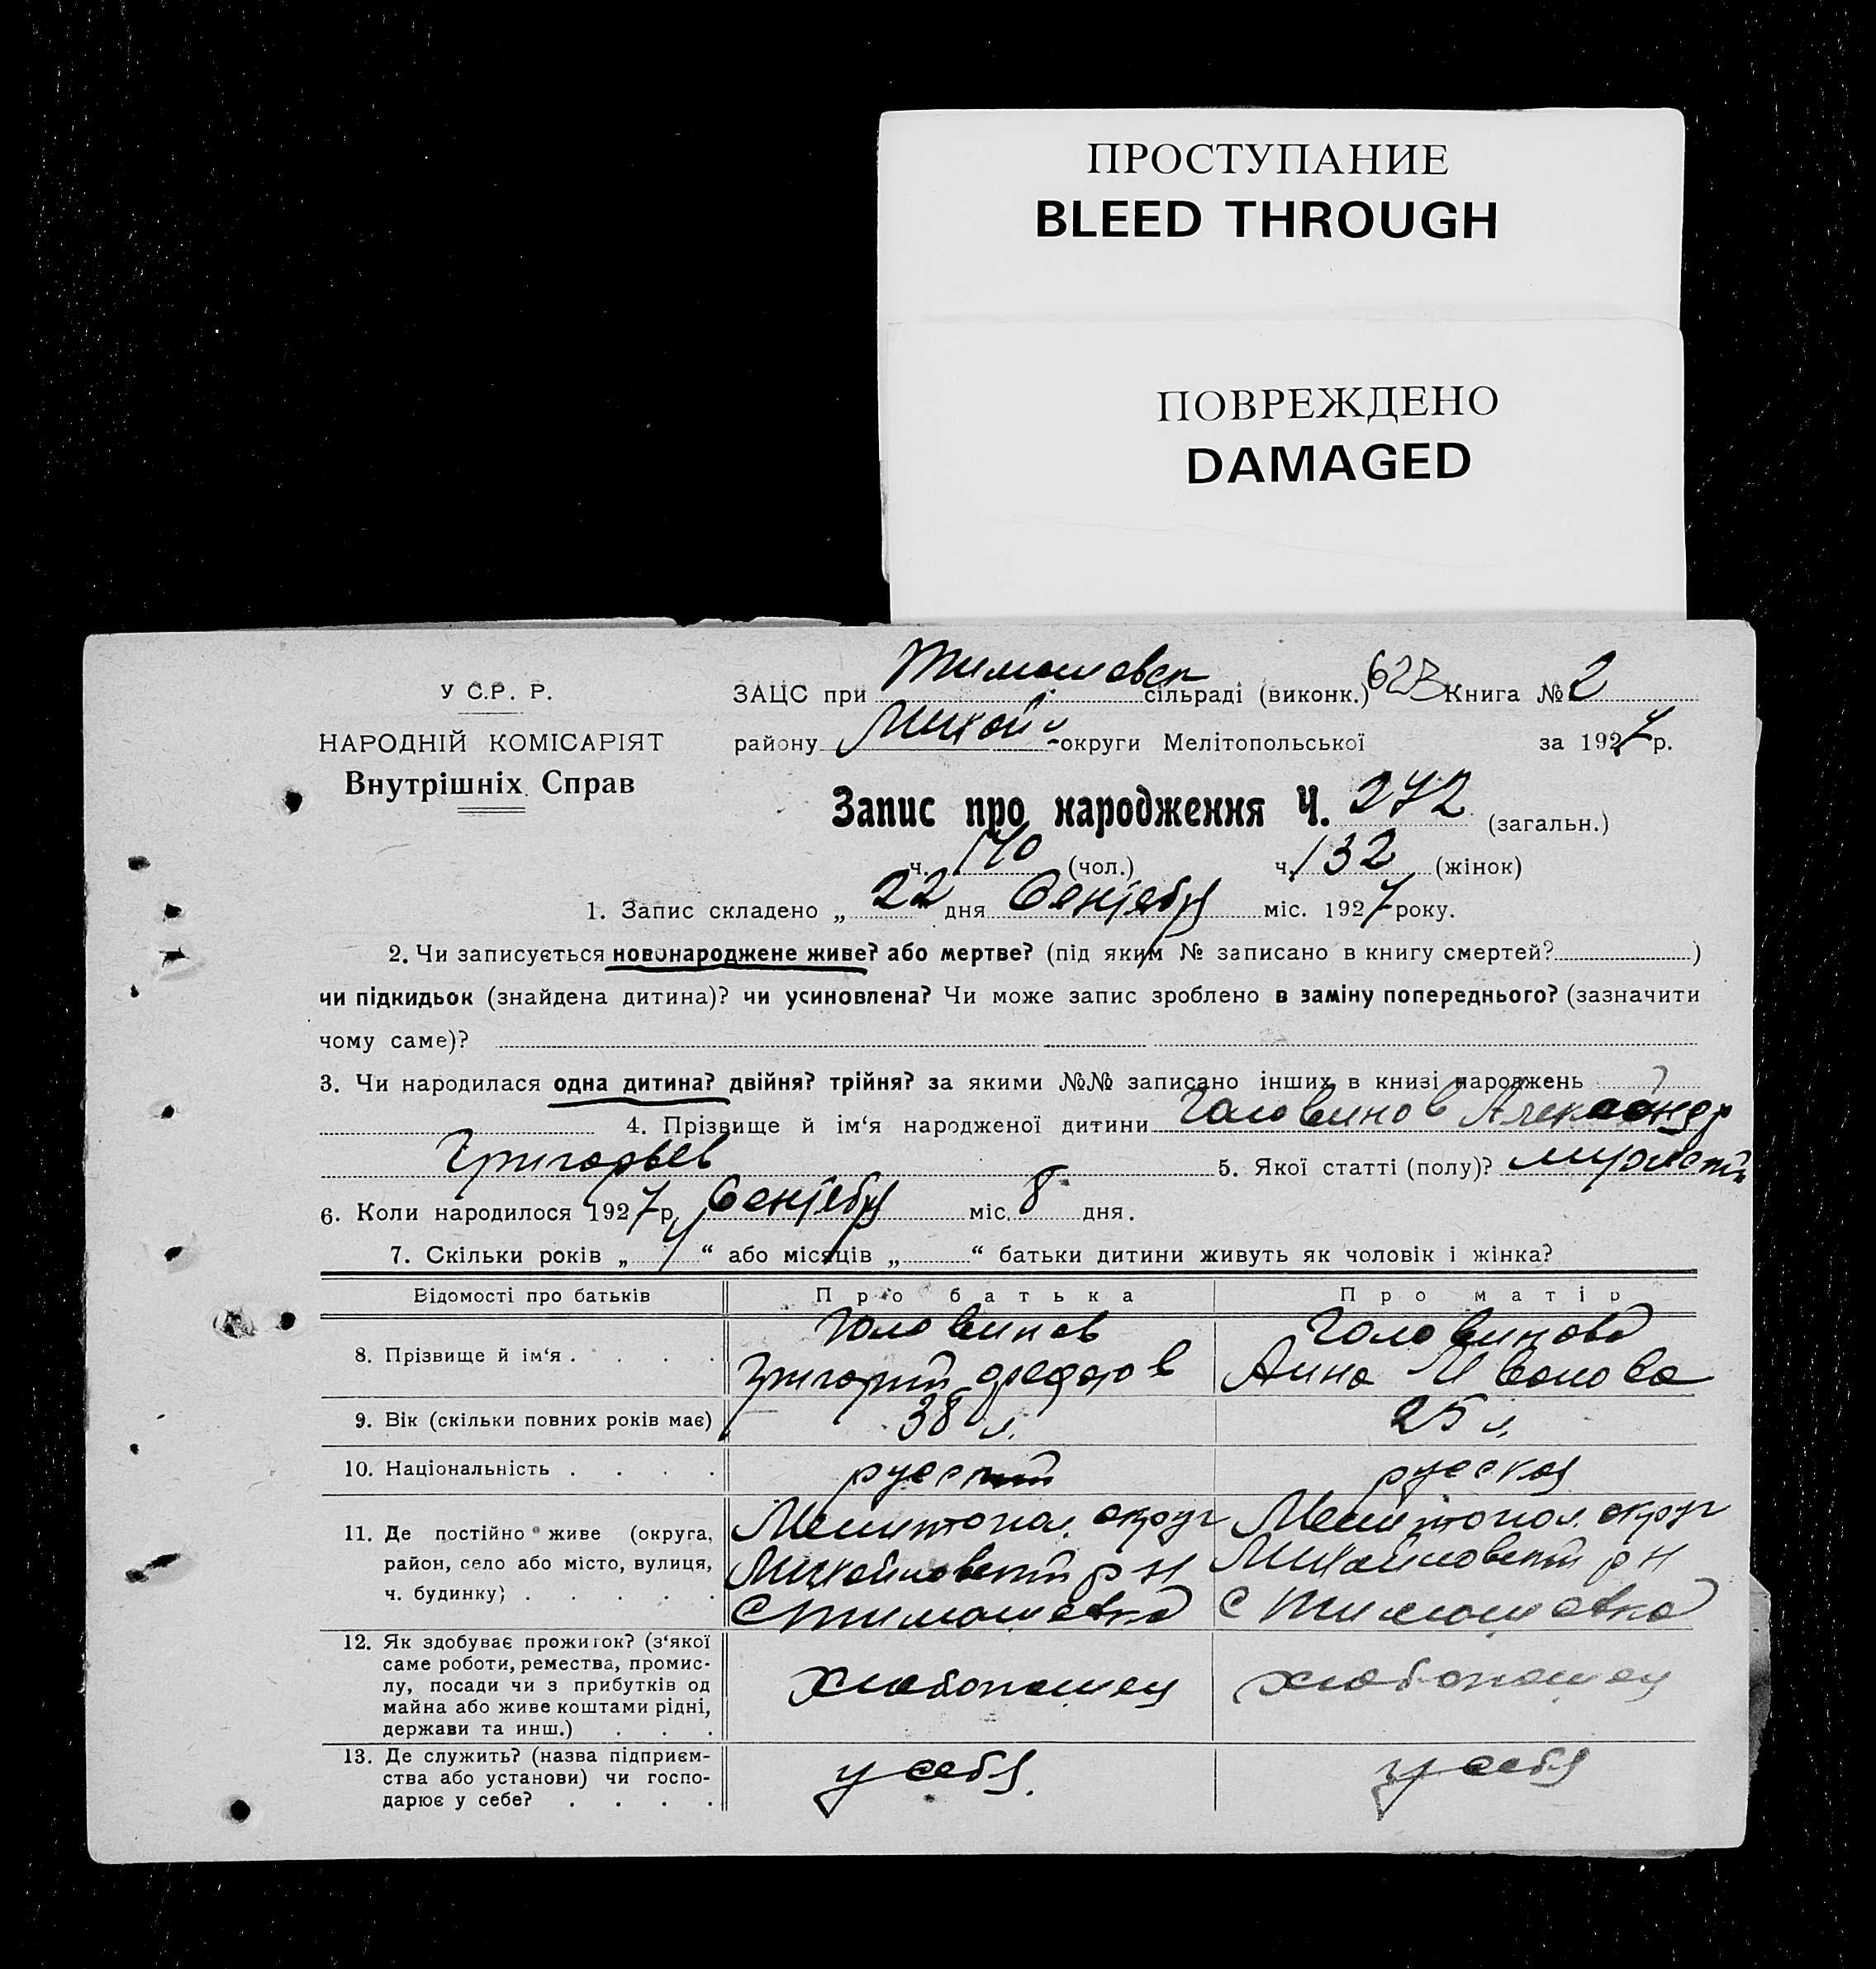 ПРОСТУПАНИЕ
BLEED THROUGH
ПОВРЕЖДЕНО
DAMAGED
У С.Р. Р.
НАРОДНІЙ КОМІСАРІЯТ
Внутрішніх Справ
ЗАЦС при Тимошовск сільраді (виконк.) 623 Книга № 2
району Михай округи Мелітопольської за 1927 р.
Запис про народження Ч. 272 (загальн.)
ч. 140 (чол.) ч. 132 (жінок)
1. Запис складено „ 22 " дня Сентебря міс. 1927 року.
2. Чи записується новонароджене живе? або мертве? (під яким № записано в книгу смертей? )
чи підкидьок (знайдена дитина)? чи усиновлена? Чи може запис зроблено в заміну попереднього? (зазначити
чому саме)?
3. Чи народилася одна дитина? двійня? трійня? за якими №№ записано інших в книзі народжень
4. Прізвище й ім‘я народженої дитини Головинов Александр
Григорьев 5. Якої статті (полу)?
6. Коли народилося 1927 р. Сентебря міс. 8 дня.
7. Скільки років „ 4 “ або місяців „ “ батьки дитини живуть як чоловік і жінка?
Відомості про батьків Про батька Про матір
8. Прізвище й ім‘я . . . . Головинов Головинова
Григорий Федоров Анна Иванова
9. Вік (скільки повних років має) 38 л. 25 л.
10. Національність . . . . русский русская
11. Де постійно живе (округа, Мелитопол. округ Мелитопол. округ
район, село або місто, вулиця, Михайловский р н Михайловский р н
ч. будинку) . . . . . С Тимошовка С Тимошовка
12. Як здобуває прожиток? (з‘якої
саме роботи, ремества, промис-
лу, посади чи з прибутків од хлебопашец хлебопашец
майна або живе коштами рідні,
держави та инш.) . . .
13. Де служить? (назва підприєм-
ства або установи) чи госпо- у себя. у себя
дарює у себе? . . . .